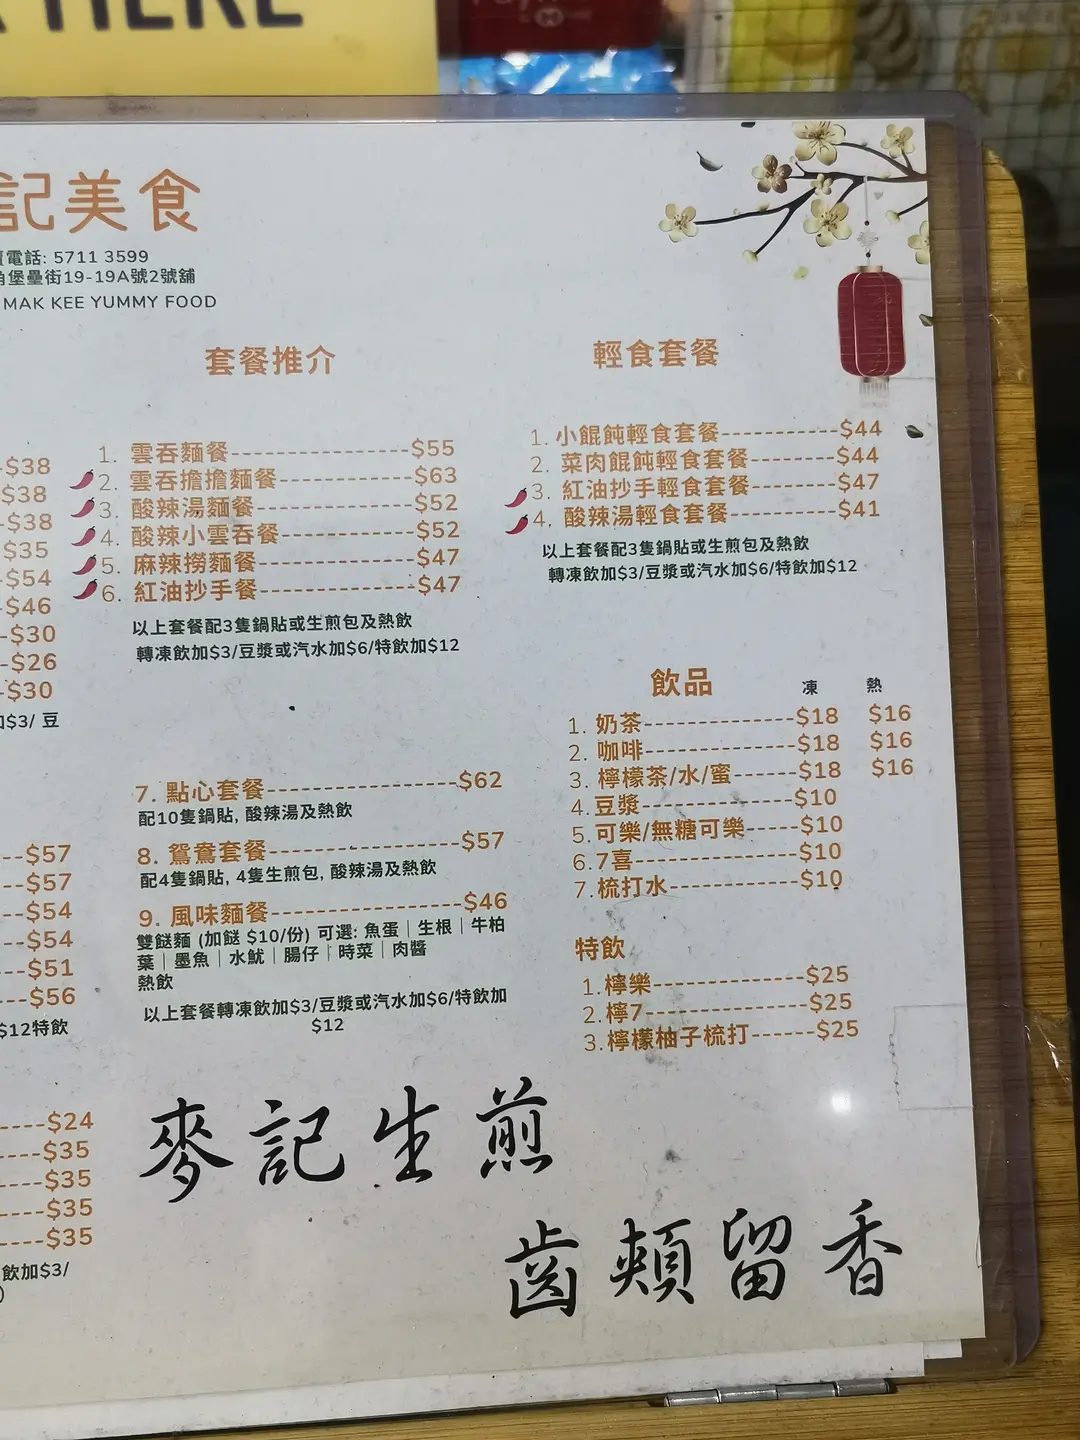 HERE
記美食
電話: 5711 3599
角堡壘街19-19A號2號舖
MAK KEE YUMMY FOOD
-$38
$38
-$38
$35
-$54
-$46
-$30
-$26
-$30
$3/ 豆
---$57
---$57
---$54
---$54
---$51
---$56
$12特飲
----$24
----$35
----$35
----$35
----$35
飲加$3/
)
套餐推介
1. 雲吞麵餐------------------$55
2. 雲吞擔擔麵餐-------------$63
3. 酸辣湯麵餐----------------$52
4. 酸辣小雲吞餐-------------$52
5. 麻辣撈麵餐----------------$47
6. 紅油抄手餐----------------$47
以上套餐配3隻鍋貼或生煎包及熱飲
轉凍飲加$3/豆漿或汽水加$6/特飲加$12
7. 點心套餐-------------------$62
配10隻鍋貼, 酸辣湯及熱飲
8. 鴛鴦套餐-------------------$57
配4隻鍋貼, 4隻生煎包, 酸辣湯及熱飲
9. 風味麵餐-------------------$46
雙餸麵 (加餸 $10/份) 可選: 魚蛋｜生根｜牛柏
葉｜墨魚｜水魷｜腸仔｜時菜｜肉醬
熱飲
以上套餐轉凍飲加$3/豆漿或汽水加$6/特飲加
$12
輕食套餐
1. 小餛飩輕食套餐-----------$44
2. 菜肉餛飩輕食套餐--------$44
3. 紅油抄手輕食套餐--------$47
4. 酸辣湯輕食套餐----------$41
以上套餐配3隻鍋貼或生煎包及熱飲
轉凍飲加$3/豆漿或汽水加$6/特飲加$12
飲品 凍 熱
1. 奶茶---------------$18 $16
2. 咖啡---------------$18 $16
3. 檸檬茶/水/蜜------$18 $16
4.豆漿---------------$10
5.可樂/無糖可樂-----$10
6.7喜----------------$10
7.梳打水-------------$10
特飲
1.檸樂---------------$25
2.檸7----------------$25
3.檸檬柚子梳打------$25
麥記生煎
齒頰留香